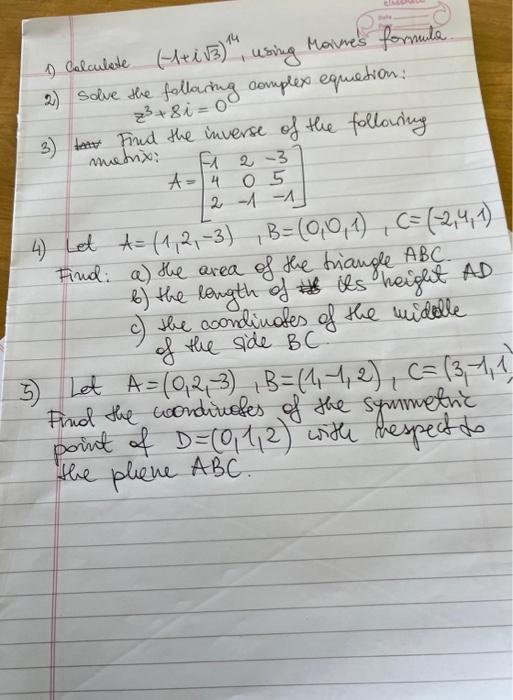 1) Calculate (-1+i√3)^14, using Moivre's formula.
2) Solve the following complex equation:
z³+8i=0
3) Find the inverse of the following
matrix:
A= [-1 2 -3
4 0 5
2 -1 -1]
4) Let A=(1,2,-3), B=(0,0,1), C=(-2,4,1)
Find: a) the area of the triangle ABC.
b) the length of its height AD
c) the coordinates of the middle
of the side BC
5) Let A=(0,2,-3), B=(1,-1,2), C=(3,-1,1)
Find the coordinates of the symmetric
point of D=(0,1,2) with respect to
the plane ABC.